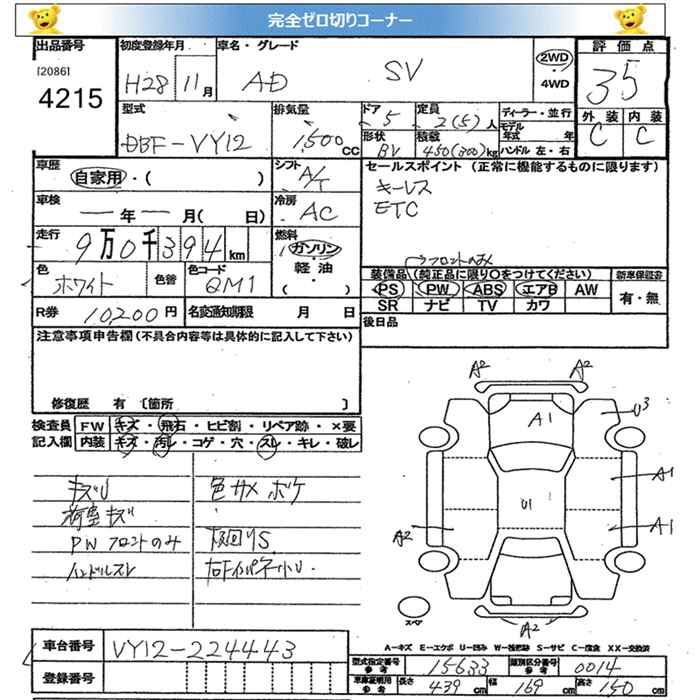 完全ゼロ切りコーナー
出品番号
[2086]
4215
初度登録年月
H28 11月
車名・グレード
AD SV
2WD
・
4WD
評価点
3.5
外装 内装
C C
型式
DBF-VY12
排気量
1,500 CC
ドア 5
形状 BV
定員 2(5)人
積載 450(300)kg
ディーラー・並行
モデル年式 年
ハンドル 左・右
車歴
自家用・( )
シフト
A/T
セールスポイント(正常に機能するものに限ります)
キーレス
ETC
車検
— 年 — 月( 日)
冷房
AC
走行
9万0千394km
燃料
ガソリン
・
軽油
・
( )
色
ホワイト
色替
色コード
QM1
フロントのみ
装備品(純正品に限り○をつけてください)
新車保証書
PS PW ABS エアB AW
有・無
SR ナビ TV カワ
R券 10200円
名変通知期限 月 日
後日品
注意事項申告欄(不具合内容等は具体的に記入して下さい)
修復歴 有 [箇所 ]
検査員記入欄
FW キズ・飛石・ヒビ割・リペア跡・×要
内装 キズ・汚レ・コゲ・穴・スレ・キレ・破レ
キズU
色サメ ボケ
荷室キズ
PW フロントのみ
下回りS
ハンドルスレ
A2 A2
A1
U3
A1
U1
A2
A1
A2
スペア
A-キズ E-エクボ U-凹み W-補修跡 S-サビ C-腐食 XX-交換済
車台番号 VY12-224443
登録番号
型式指定番号 参考 15633
類別区分番号 参考 0014
車庫証明用 参考
長さ 439cm
幅 169cm
高さ 150cm